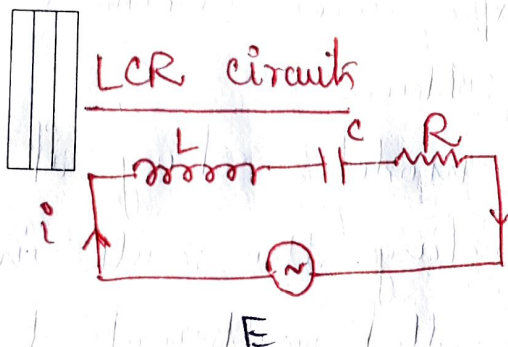 LCR circuits
L C R
i
~
E